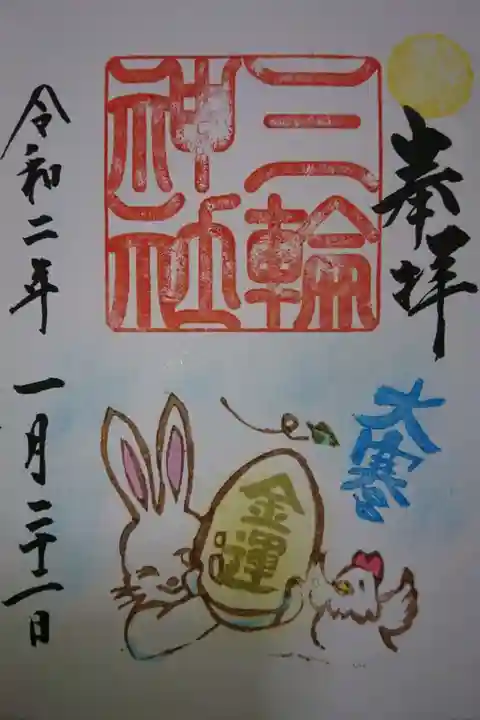 奉拝
三輪
神社
大寒
金運
令和二年 一月二十二日